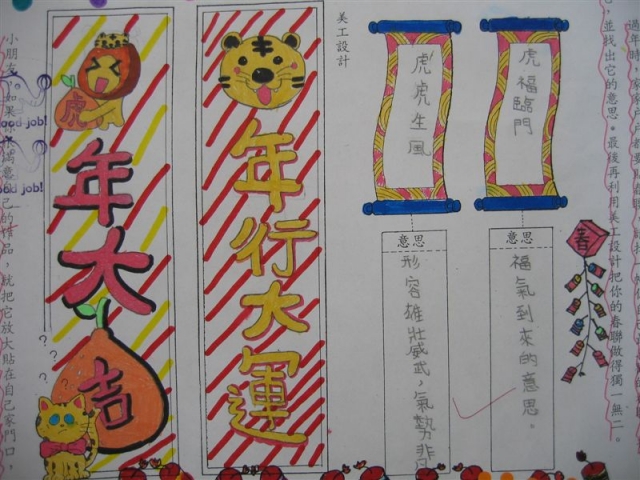 並找出它的意思。最後再利用美工設計把你的春聯做得獨一無二。
春
虎福臨門
意思
福氣到來的意思。
虎虎生風
意思
形容雄壯威武，氣勢非
美工設計
年行大運
虎
年大吉
? ? ?
小朋友，如果你滿意自己的作品，就把它放大貼在自己家門口，
ood job!
ood job!